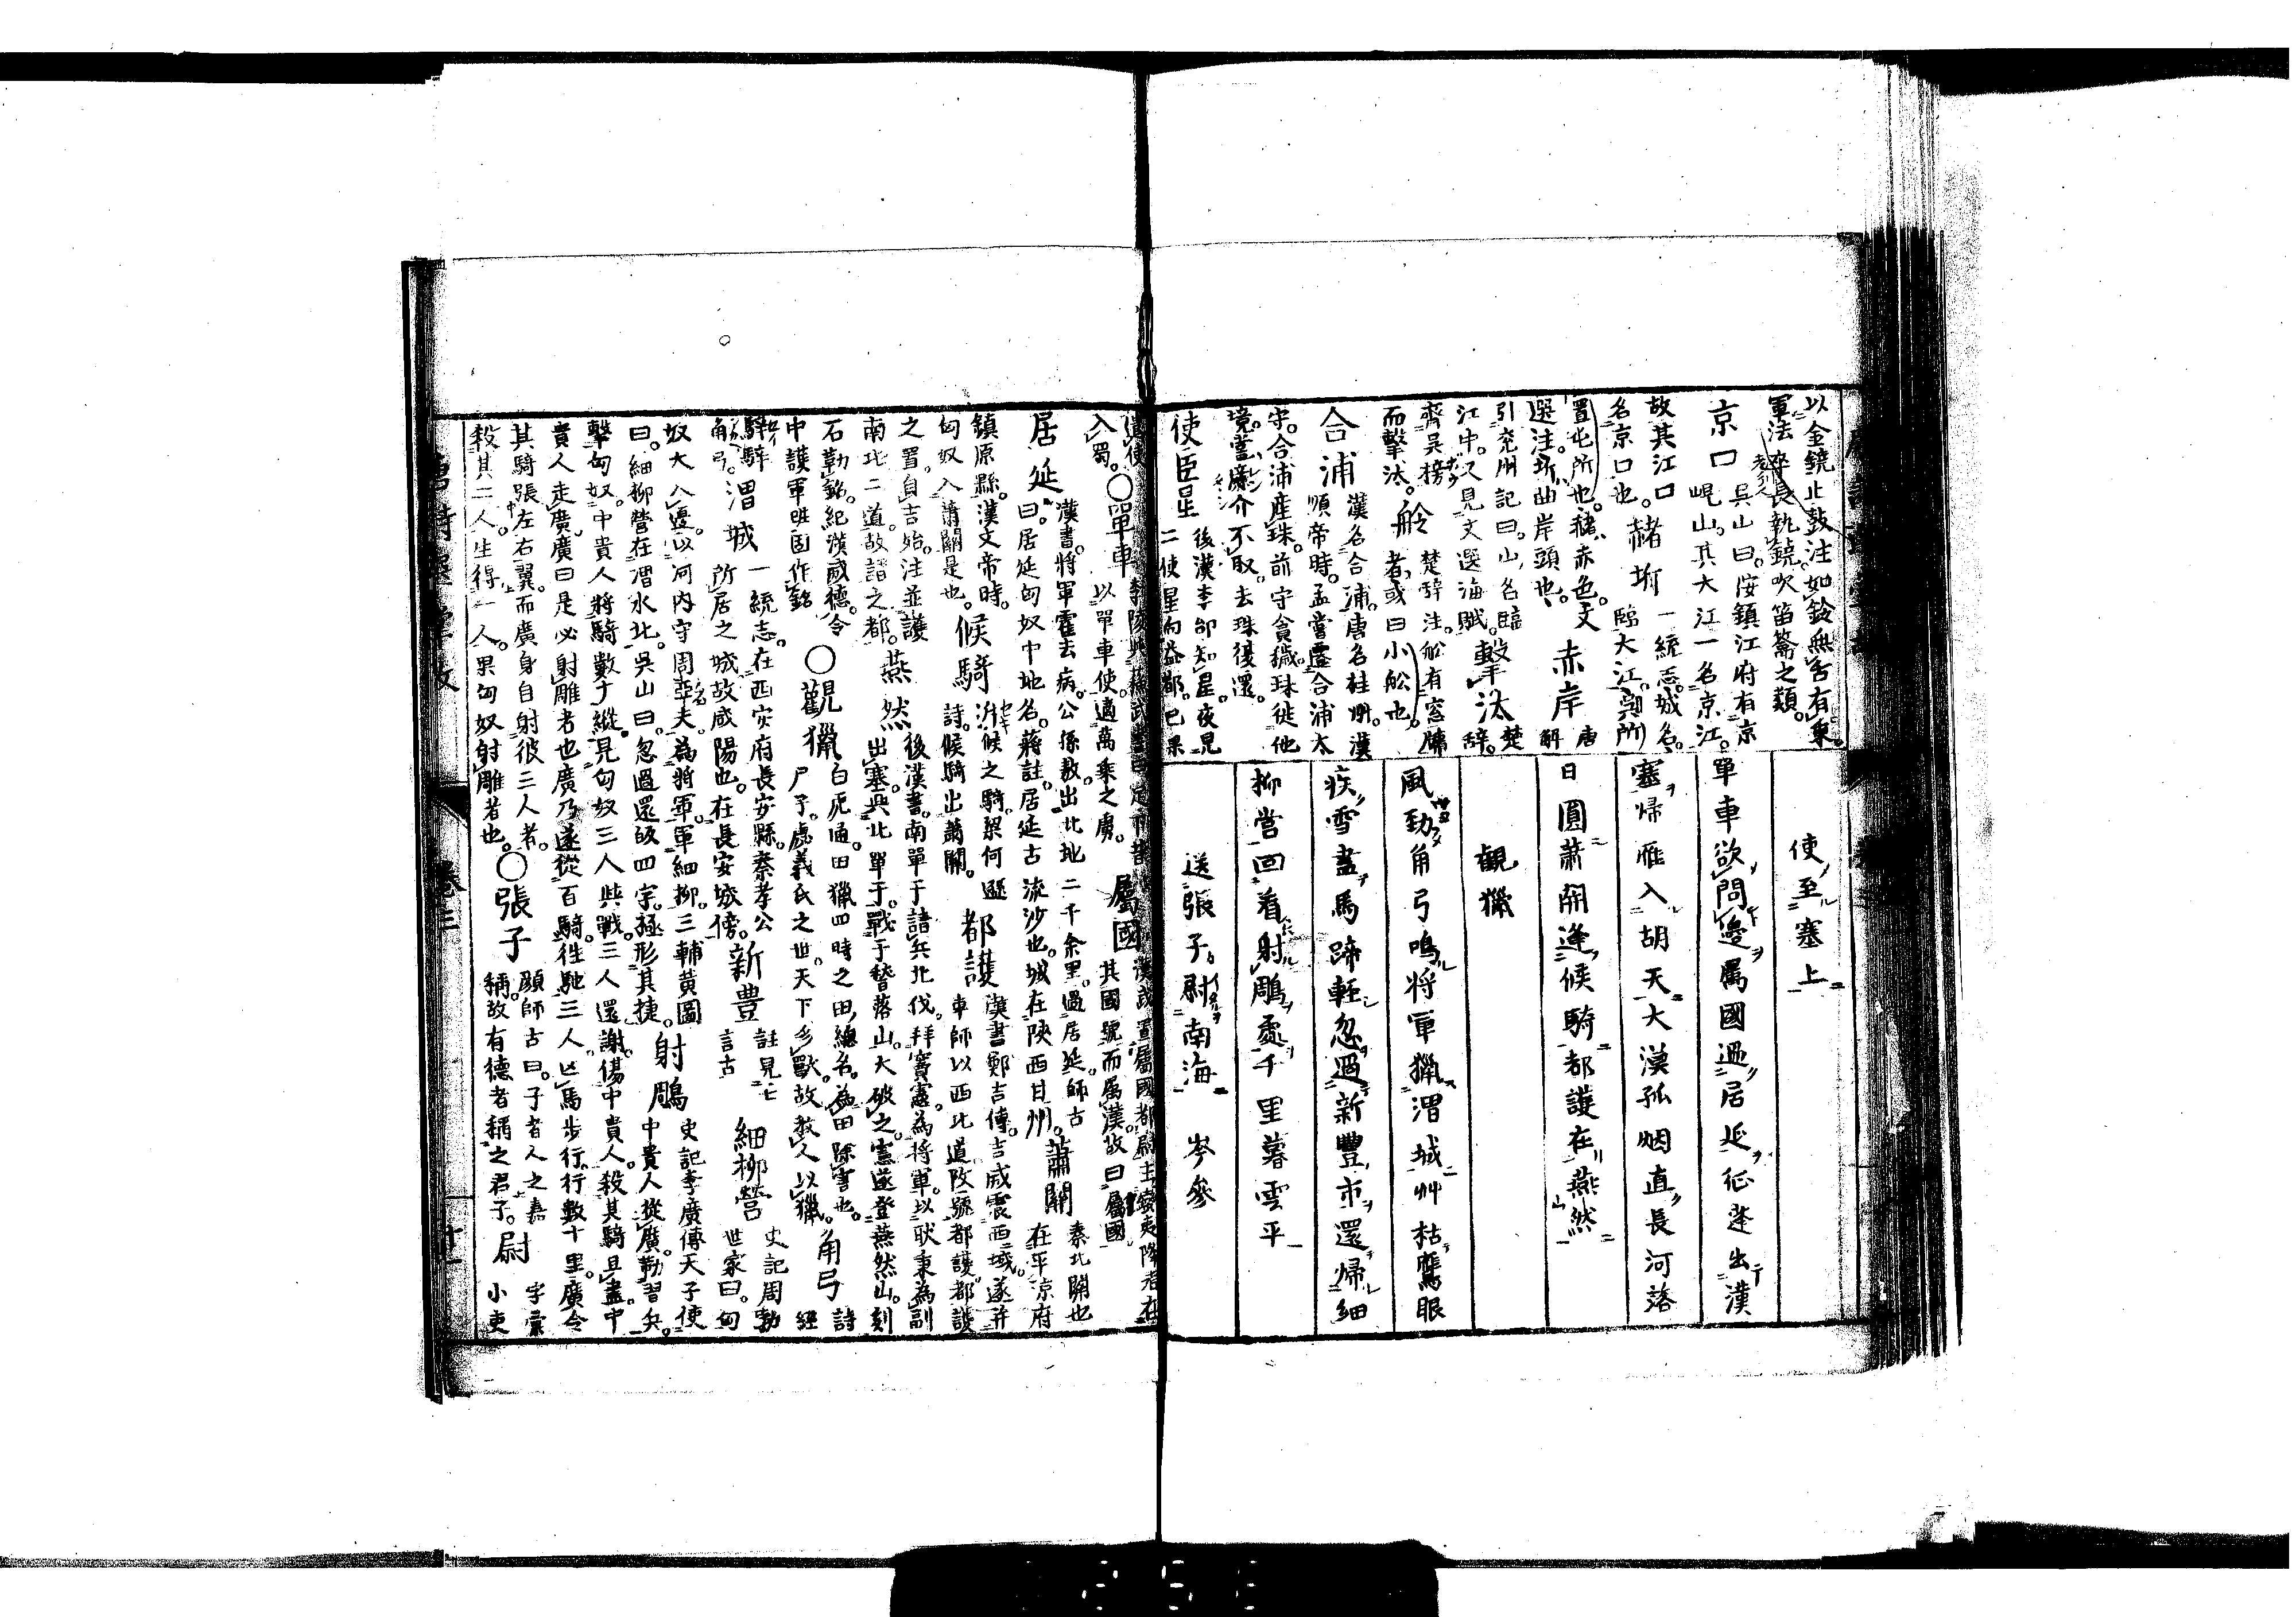 以金鐃止鼓注如鈴無舌有秉
軍法卒長執鐃吹笛籥之類
京口 吳山曰按鎮江府有京峴山其大江一名京江
故其江口名京口也 赭圻 一統志城名臨大江吳所
置屯所也赭赤色文選注圻曲岸頭也 赤岸 唐解
引兗州記曰山名臨江中又見文選海賦 擊汰 楚辞
齊吳榜而擊汰 舲 楚辞注舩有窓牖者或曰小舩也
合浦 漢名合浦唐名桂州漢順帝時孟嘗遷合浦太
守合浦産珠前守貪穢珠徙他境嘗廉介不取去珠復還
使臣星 後漢李郃知星夜見二使星向益部已果
使至塞上
單車欲問邊屬國過居延征蓬出漢
塞帰雁入胡天大漠孤烟直長河落
日圓蕭関逢候騎都護在燕然
観獵
風勁角弓鳴将軍獵渭城艸枯鷹眼
疾雪盡馬蹄輕忽過新豐市還帰細
柳営回看射雕處千里暮雲平
送張子尉南海 岑參
入蜀 ○單車 以單車使適萬乘之虜 屬國 其國號而属漢故曰屬國
居延 漢書將軍霍去病公孫敖出北地二千余里過居延師古曰居延匈奴中地名蔣註居延古流沙也城在陝西甘州 蕭關 秦北関也在平涼府
鎮原縣漢文帝時匈奴入蕭關是也 候騎 候之騎梁何遜詩候騎出蕭關 都護 漢書鄭吉傳吉威震西域遂并車師以西北道故號都護都護
之置自吉始注並護南北二道故謂之都 燕然 後漢書南單于請兵北伐拜竇憲為将軍以耿秉為副出塞與北單于戰于稽落山大破之憲遂登燕然山刻
石勒銘紀漢威德令中護軍班固作銘 ○觀獵 白虎通田獵四時之田總名為田除害也尸子虙羲氏之世天下多獸故教人以獵 角弓 詩経
騂騂角弓 渭城 一統志在西安府長安縣秦孝公所居之城故咸陽也在長安城傍 新豊 註見七言古 細柳營 史記周勃世家曰匈
奴大入邊以河内守周亞夫為將軍軍細柳三輔黄圖曰細柳營在渭水北吳山曰忽過還皈四字極形其捷 射雕 史記李廣傳天子使中貴人從廣勒習兵
擊匈奴中貴人將騎數十縱見匈奴三人與戰三人還謝傷中貴人殺其騎且盡中
貴人走廣廣曰是必射雕者也廣乃遂從百騎往馳三人亡馬步行行數十里廣令
其騎張左右翼而廣身自射彼三人者
殺其二人生得一人果匈奴射雕者也 ○張子 顔師古曰子者人之嘉稱故有德者稱之君子 尉 字彙小吏